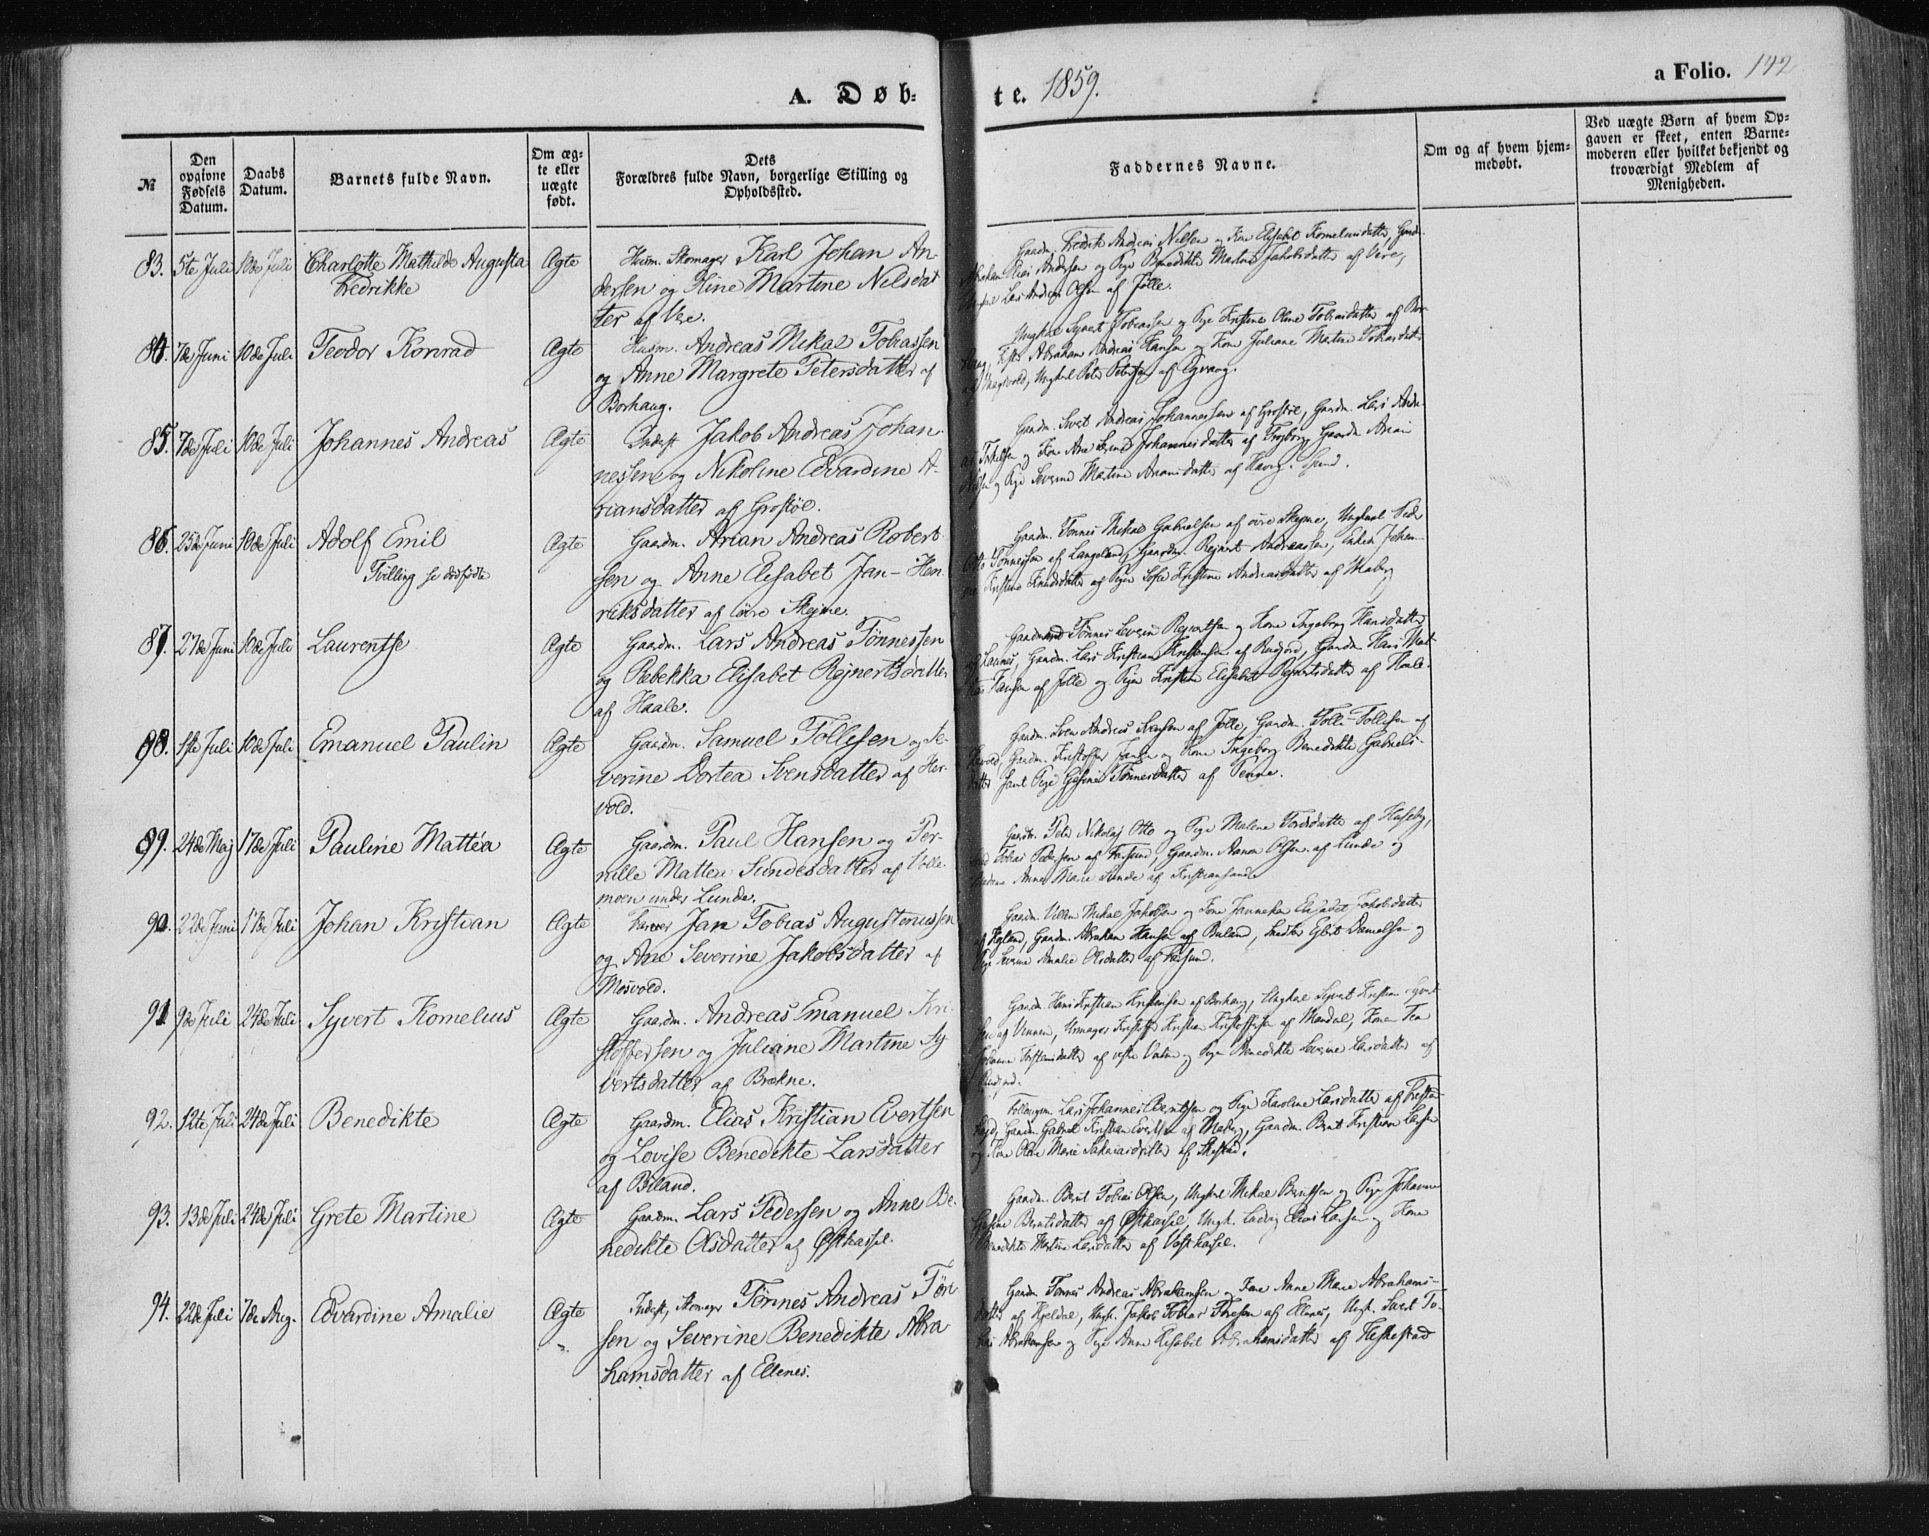 A. Døb-
te. 1859.
a Folio. 142
№
Den opgivne Fødsels Datum.
Daabs Datum.
Barnets fulde Navn.
Om ægte eller uægte født.
Dets Forældres fulde Navn, borgerlige Stilling og Opholdssted.
Faddernes Navne.
Om og af hvem hjemmedøbt.
Ved uægte Børn af hvem Opgaven er skeet, enten Barnemoderen eller hvilket bekjendt og troværdigt Medlem af Menigheden.
83. 5te Juli 10de Juli Charlotte Mathilde Augusta Ægte Husm. Skomager Karl Johan An-
Fredrikke dersen og Stine Martine Nilsdat
ter af Vere.
Gaardm. Fredrik Andreas Nilsen og Kone Elisabet Kornelius datter,
Abraham Elias Andersen og Pige Benedikte Martine Jakobsdatter af Vere,
Lars Andreas Olsen af Jølle.
84. 7de Juni 10de Juli Teodor Konrad Ægte Husm. Andreas Mikal Tobiassen
og Anne Margrete Petersdatter af
Borhaug.
Ungkal Syvert Tobiassen og Pige Kristine Oline Tobiasdatter af Bor-
haug, Abraham Andreas Hansen og Kone Juliane Martine Tobiasdatter
Ungkal Peter Petersen af
85. 7de Juli 10de Juli Johannes Andreas Ægte Inderst Jakob Andreas Johan-
nessen og Nikoline Edvardine A-
riansdatter af Grostøl.
Gaardm. Sivert Andreas Johannessen af Grostøl, Gaardm. Lars Andre-
as og Kone Ane Johannesdatter af Gaardm Arian
og Pige Severine Martine Ariansdatter af
86. 25de Juni 10de Juli Adolf Emil Ægte Gaardm. Arian Andreas Robert
Tvilling se dødfødte sen og Anne Elisabet Jan-Hen
riksdatter af øvre Skejne.
Gaardm. Tønnes Mikal Gabrielsen af øvre Skejne, Ungkal Peder
Otto Tønnessen af Langeland, Gaardm. Rejnert Andreassen, Enken Johan-
ne Kristine Knudsdatter og Pige Sofie Kristine Andreasdatter af Maberg
87. 27de Juni 10de Juli Laurentse Ægte Gaardm. Lars Andreas Tønnessen
og Rebekka Elisabet Rejnertsdatter
af Haale.
Gaardmand Tønnes Severin Rejertsen og Kone Ingeborg Hansdatter
af Launes, Gaardm. Lars Kristian Kristensen af Rudjord, Gaardm Hans Mat-
tias Hansen af Jølle og Pige Kristine Elisabet Rejnertsdatter af Haale.
88. 1ste Juli 10de Juli Emanuel Paulin Ægte Gaardm. Samuel Tollesen og Se-
verine Dortea Svensdatter af Her-
vold.
Gaardm. Sven Andreas Svensen af Jølle, Gaardm. Tolli Tollesen af
Hervold, Gaardm. Kristoffer Jansen og Kone Ingeborg Benedikte Gabriels-
datter samt Pige Gesine Tønnesdatter af Penne.
89. 24de Maj 17de Juli Pauline Mattéa Ægte Gaardm. Paul Hansen og Per-
nille Mattea Sundesdatter af Volle-
moen under Lunde.
Gaardm. Peder Nikolaj Otto og Pige Malene Tordsdatter af Huseby,
Tobias Pedersen af Farsund, Gaardm. Aanon Olsen af Lunde og
Madam Anne Marie Lunde af Kristianssand.
90. 22de Juni 17de Juli Johan Kristian Ægte Farver Jan Tobias Augustinussen
og Ane Severine Jakobsdatter af
Mosvold.
Gaardm. Villum Mikal Jakobsen og Kone Janneken Elisabet Jakobsdatter
af Hejland, Gaardm. Abraham Hansen af Buland, Snedker Gerit Danielsen og
Pige Severine Amalie Olsdatter af Farsund.
91 9de Juli 24de Juli Syvert Kornelius Ægte Gaardm. Andreas Emanuel Kri-
stoffersen og Juliane Martine Sy
vertsdatter af Brekne.
Gaardm. Hans Kristian Kristensen af Borhaug, Ungkal Syvert Kristian Syvert-
sen af Vennen, Urmager Kristoffer Kristian Kristoffersen af Mandal, Kone Tea
Johanne Kristensdatter af vestre Vatne og Pige Benedikte Severine Larsdatter af
Rudjord.
92. 12te Juli 24de Juli Benedikte Ægte Gaardm. Elias Kristian Evertsen
og Lovise Benedikte Larsdatter
af Biland.
Folleugem. Lars Johannes Berntsen og Pige Karoline Larsdatter af
Gaardm. Gabriel Kristian Evertsen af Maberg, Gaardm. Bernt Kristian Larsen
og Kone Oline Marie Sakariasdatter af Skeistad.
93. 13de Juli 24de Juli Grete Martine Ægte Gaardm. Lars Pedersen og Anne Be-
nedikte Olsdatter af Østhassel.
Gaardm. Bernt Tobias Olsen, Ungkal Mikal Berntsen og Pige Johanne
Gesine Berntsdatter af Østhassel, Ungk. Ludvig Elias Larsen og Kone
Benedikte Martine Larsdatter af Vesthassel.
94. 22de Juli 7de Aug. Edvardine Amalie Ægte Inderst, Skomager Tønnes Andreas Tør-
". sen og Severine Benedikte Abra
hamsdatter af Ellenes.
Gaardm Tønnes Andreas Abrahamsen og Kone Anne Marie Abrahams-
datter af Hjeldal, Ungk. Jakob Tobias Tørresen af Elenes, Ungk. Sivert To-
bias Abrahamsen og Pige Anne Elisabet Abrahamsdatter af Heskestad